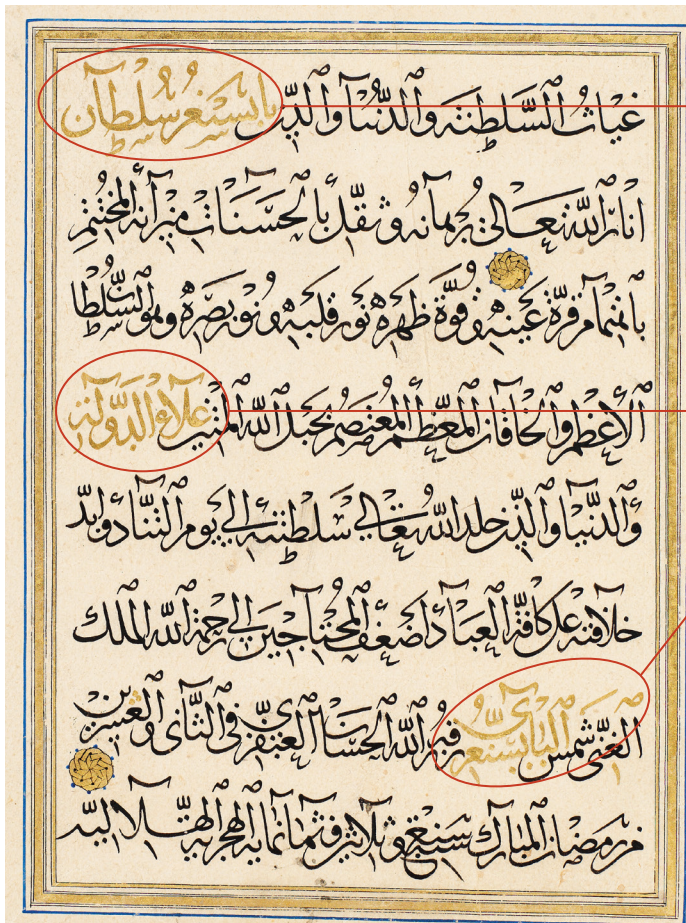 غياث السلطنة والدنيا والدين بايسنغر سلطان
انار الله تعالى برهانه وثقل بالحسنات ميزانه المختتم
قرة عينه وقوة ظهره نور قلبه ونور بصره وهو السلطان
الأعظم والخاقان المعظم المعتصم بحبل الله المتين علاء الدولة
والدنيا والدين خلد الله تعالى سلطنته إلى يوم التناد وابد
خلافته على كافة العباد اضعف المحتاجين إلى رحمة الله الملك
الغني شمس البايسنغري في الثاني والعشرين
من رمضان المبارك سنة سبع وثلاثين وثمانمائة الهجرية الهلالية